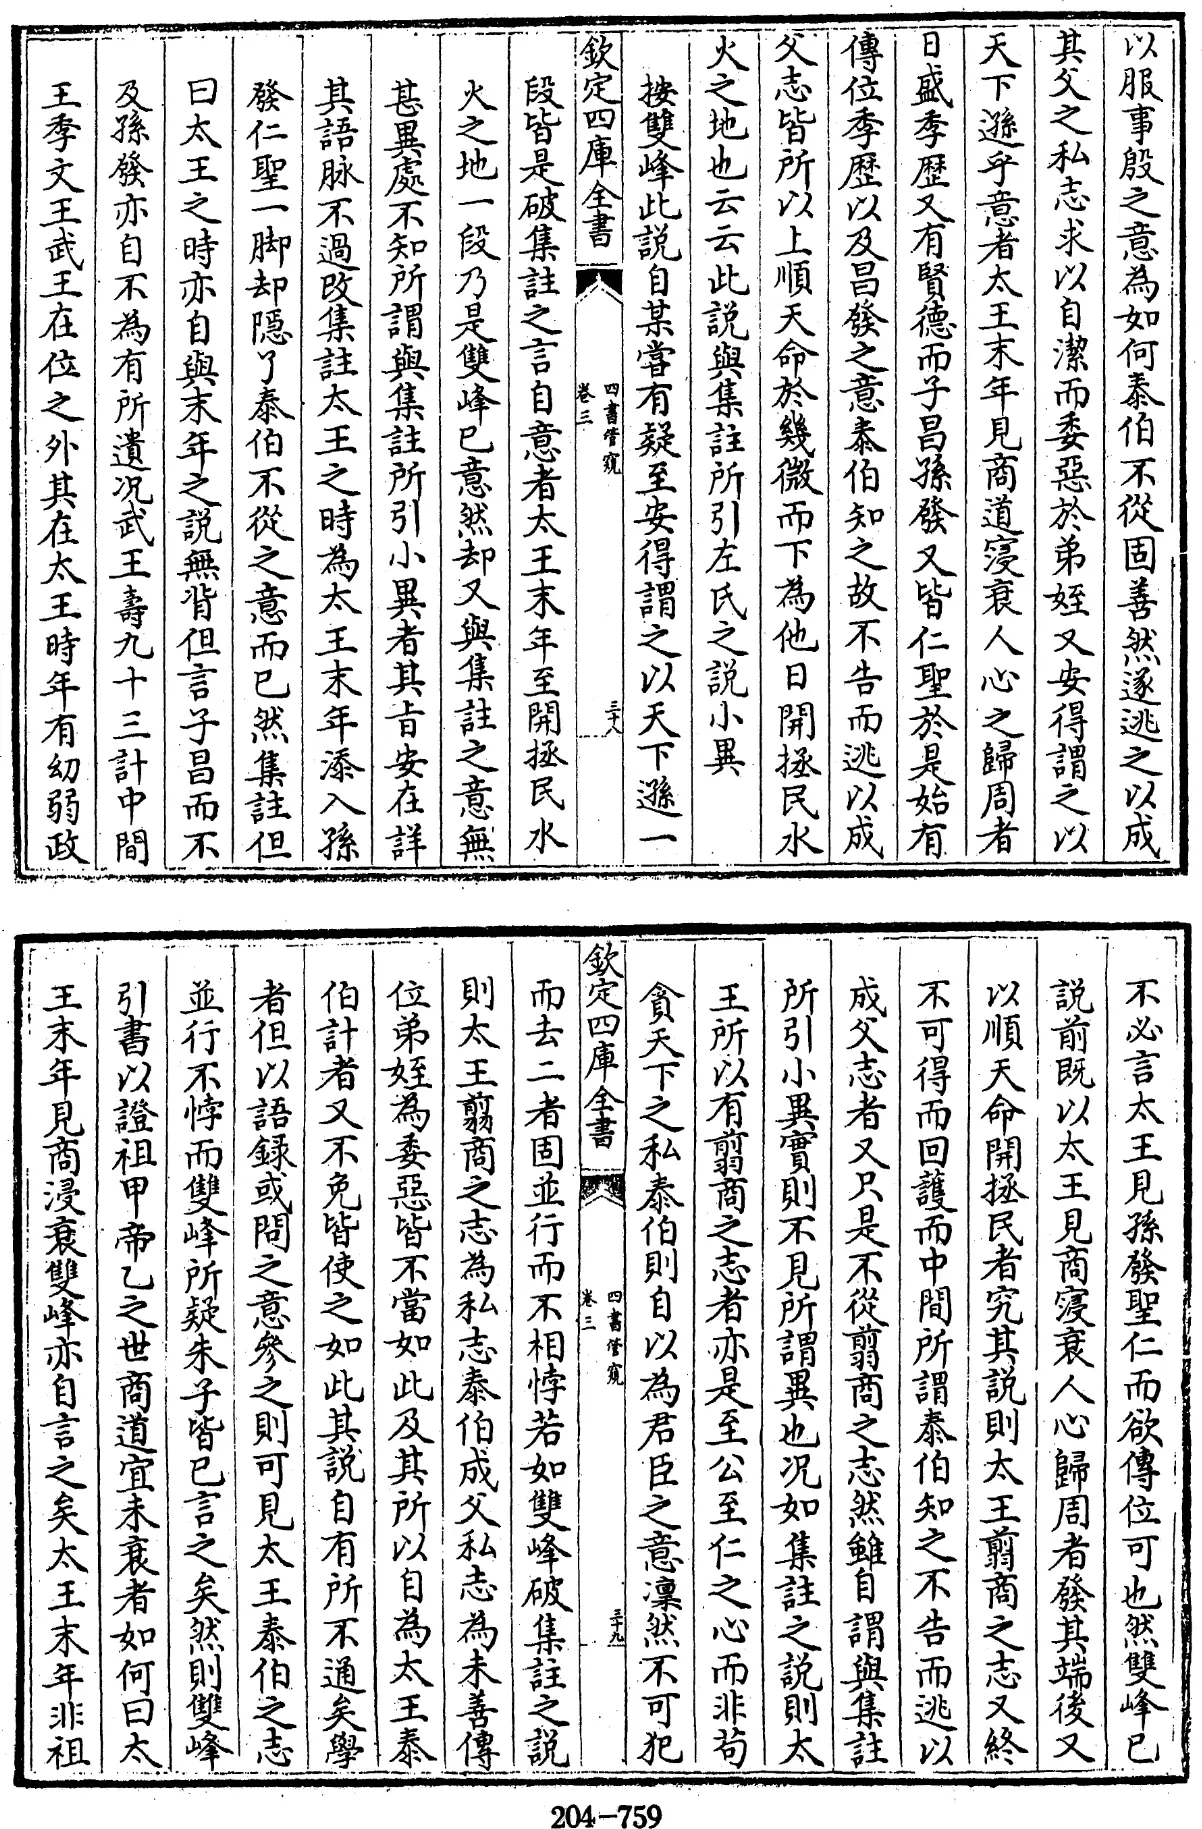 以服事殷之意為如何泰伯不從固善然遂逃之以成
其父之私志求以自潔而委惡於弟姪又安得謂之以
天下遜乎意者太王末年見商道寖衰人心之歸周者
日盛季歴又有賢德而子昌孫發又皆仁聖於是始有
傳位季歴以及昌發之意泰伯知之故不告而逃以成
父志皆所以上順天命於幾微而下為他日開拯民水
火之地也云云此説與集註所引左氏之説小異
按雙峰此説自某嘗有疑至安得謂之以天下遜一
欽定四庫全書
四書管窺
卷三
三十八
段皆是破集註之言自意者太王末年至開拯民水
火之地一段乃是雙峰已意然却又與集註之意無
甚異處不知所謂與集註所引小異者其㫖安在詳
其語脉不過改集註太王之時為太王末年添入孫
發仁聖一脚却隱了泰伯不從之意而已然集註但
曰太王之時亦自與末年之説無背但言子昌而不
及孫發亦自不為有所遺况武王壽九十三計中間
王季文王武王在位之外其在太王時年有幼弱政
不必言太王見孫發聖仁而欲傳位可也然雙峰已
説前既以太王見商寖衰人心歸周者發其端後又
以順天命開拯民者究其説則太王翦商之志又終
不可得而回護而中間所謂泰伯知之不告而逃以
成父志者又只是不從翦商之志然雖自謂與集註
所引小異實則不見所謂異也况如集註之説則太
王所以有翦商之志者亦是至公至仁之心而非茍
貪天下之私泰伯則自以為君臣之意凛然不可犯
欽定四庫全書
四書管窺
卷三
三十九
而去二者固並行而不相悖若如雙峰破集註之説
則太王翦商之志為私志泰伯成父私志為未善傳
位弟姪為委惡皆不當如此及其所以自為太王泰
伯計者又不免皆使之如此其説自有所不通矣學
者但以語録或問之意參之則可見太王泰伯之志
並行不悖而雙峰所疑朱子皆已言之矣然則雙峰
引書以證祖甲帝乙之世商道宜未衰者如何曰太
王末年見商浸衰雙峰亦自言之矣太王末年非祖
204-759